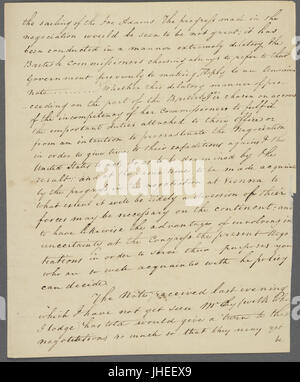 the sailing of the Jno. Adams. The progress made in the
negociation would be seen to be not great; it has
been conducted in a manner extremely dilatory, the
British Commissioners choosing always to refer to their
Government previously to making Reply to an American
Note. Whether this dilatory manner of pro-
ceeding on the part of the British is chosen on account
of the incompetency of her Commissioners to fulfil
the important duties attached to their Offices or
from an intention to procrastinate the Negociation
in order to give time to their expeditions against the
United States to be determined by the
result and to be made acquainted
by the progress of the negociation at Vienna to
what extent it will be likely a diversion of their
forces may be necessary on the continent and
to have likewise the advantages of involving in
uncertainty at the Congress the present Nego-
tiations in order to serve their purposes you
who are so well acquainted with the policy
can decide.
The Note received last evening
which I have not yet seen Mr Clay (with whom
I lodge) has told would give a turn to the
negotiations so much so that they may yet
be
alamy
Image ID: JHEEX9
www.alamy.com